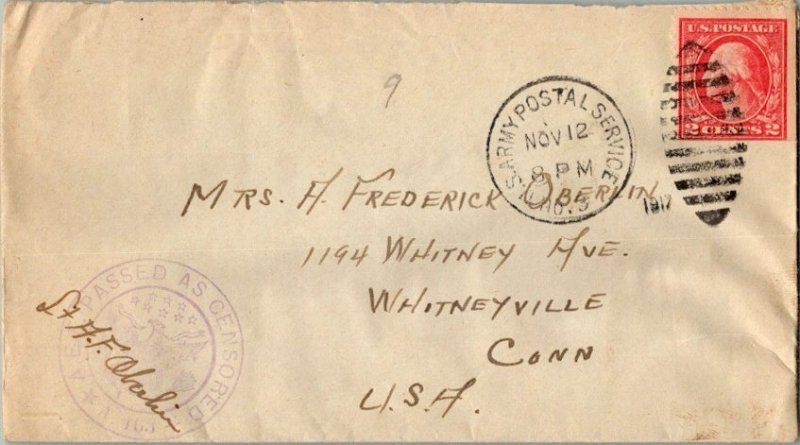 9
U.S. POSTAGE
2 CENTS 2
U.S. ARMY POSTAL SERVICE
NOV 12
8 PM
No. 3
1917
MRS. A. FREDERICK OBERLIN
1194 WHITNEY AVE.
WHITNEYVILLE
CONN
U.S.A.
PASSED AS CENSORED
A.E.F.
Lt A.F. Oberlin